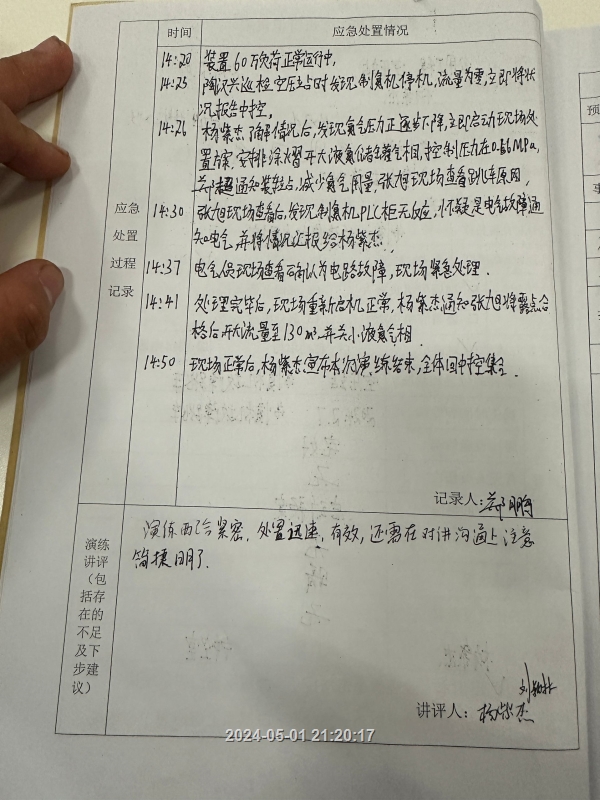 时间 应急处置情况
14:20 装置60万负荷正常运行中,
14:25 陶汉兴巡检空压站时发现制氮机停机,流量为零,立即将状
况报告中控,
14:26 杨紫杰了解情况后,发现氮气压力正逐步下降,立即启动现场处
置方案,安排涂水習开大液氮储罐气相,控制压力在0.66MPa,
通知装转占,减少氮气用量,张旭现场查看跳车原因,
14:30 张旭现场查看后,发现制氮机PLC柜无反应,怀疑是电气故障通
知电气,并将情况汇报给杨紫杰.
14:37 电气人员现场查看确认为电路故障,现场紧急处理.
14:41 处理完毕后,现场重新启机正常,杨紫杰通知张旭将露点合
格后开大流量至130m³.并关小液氮气相.
14:50 现场正常后,杨紫杰宣布本次演练结束,全体回中控集合.
应急
处置
过程
记录
记录人:
演练
讲评
(包
括存
在的
不足
及下
步建
议)
演练配合紧密,处置迅速,有效,还需在对讲沟通上注意
简捷明了.
讲评人:杨紫杰
2024-05-01 21:20:17